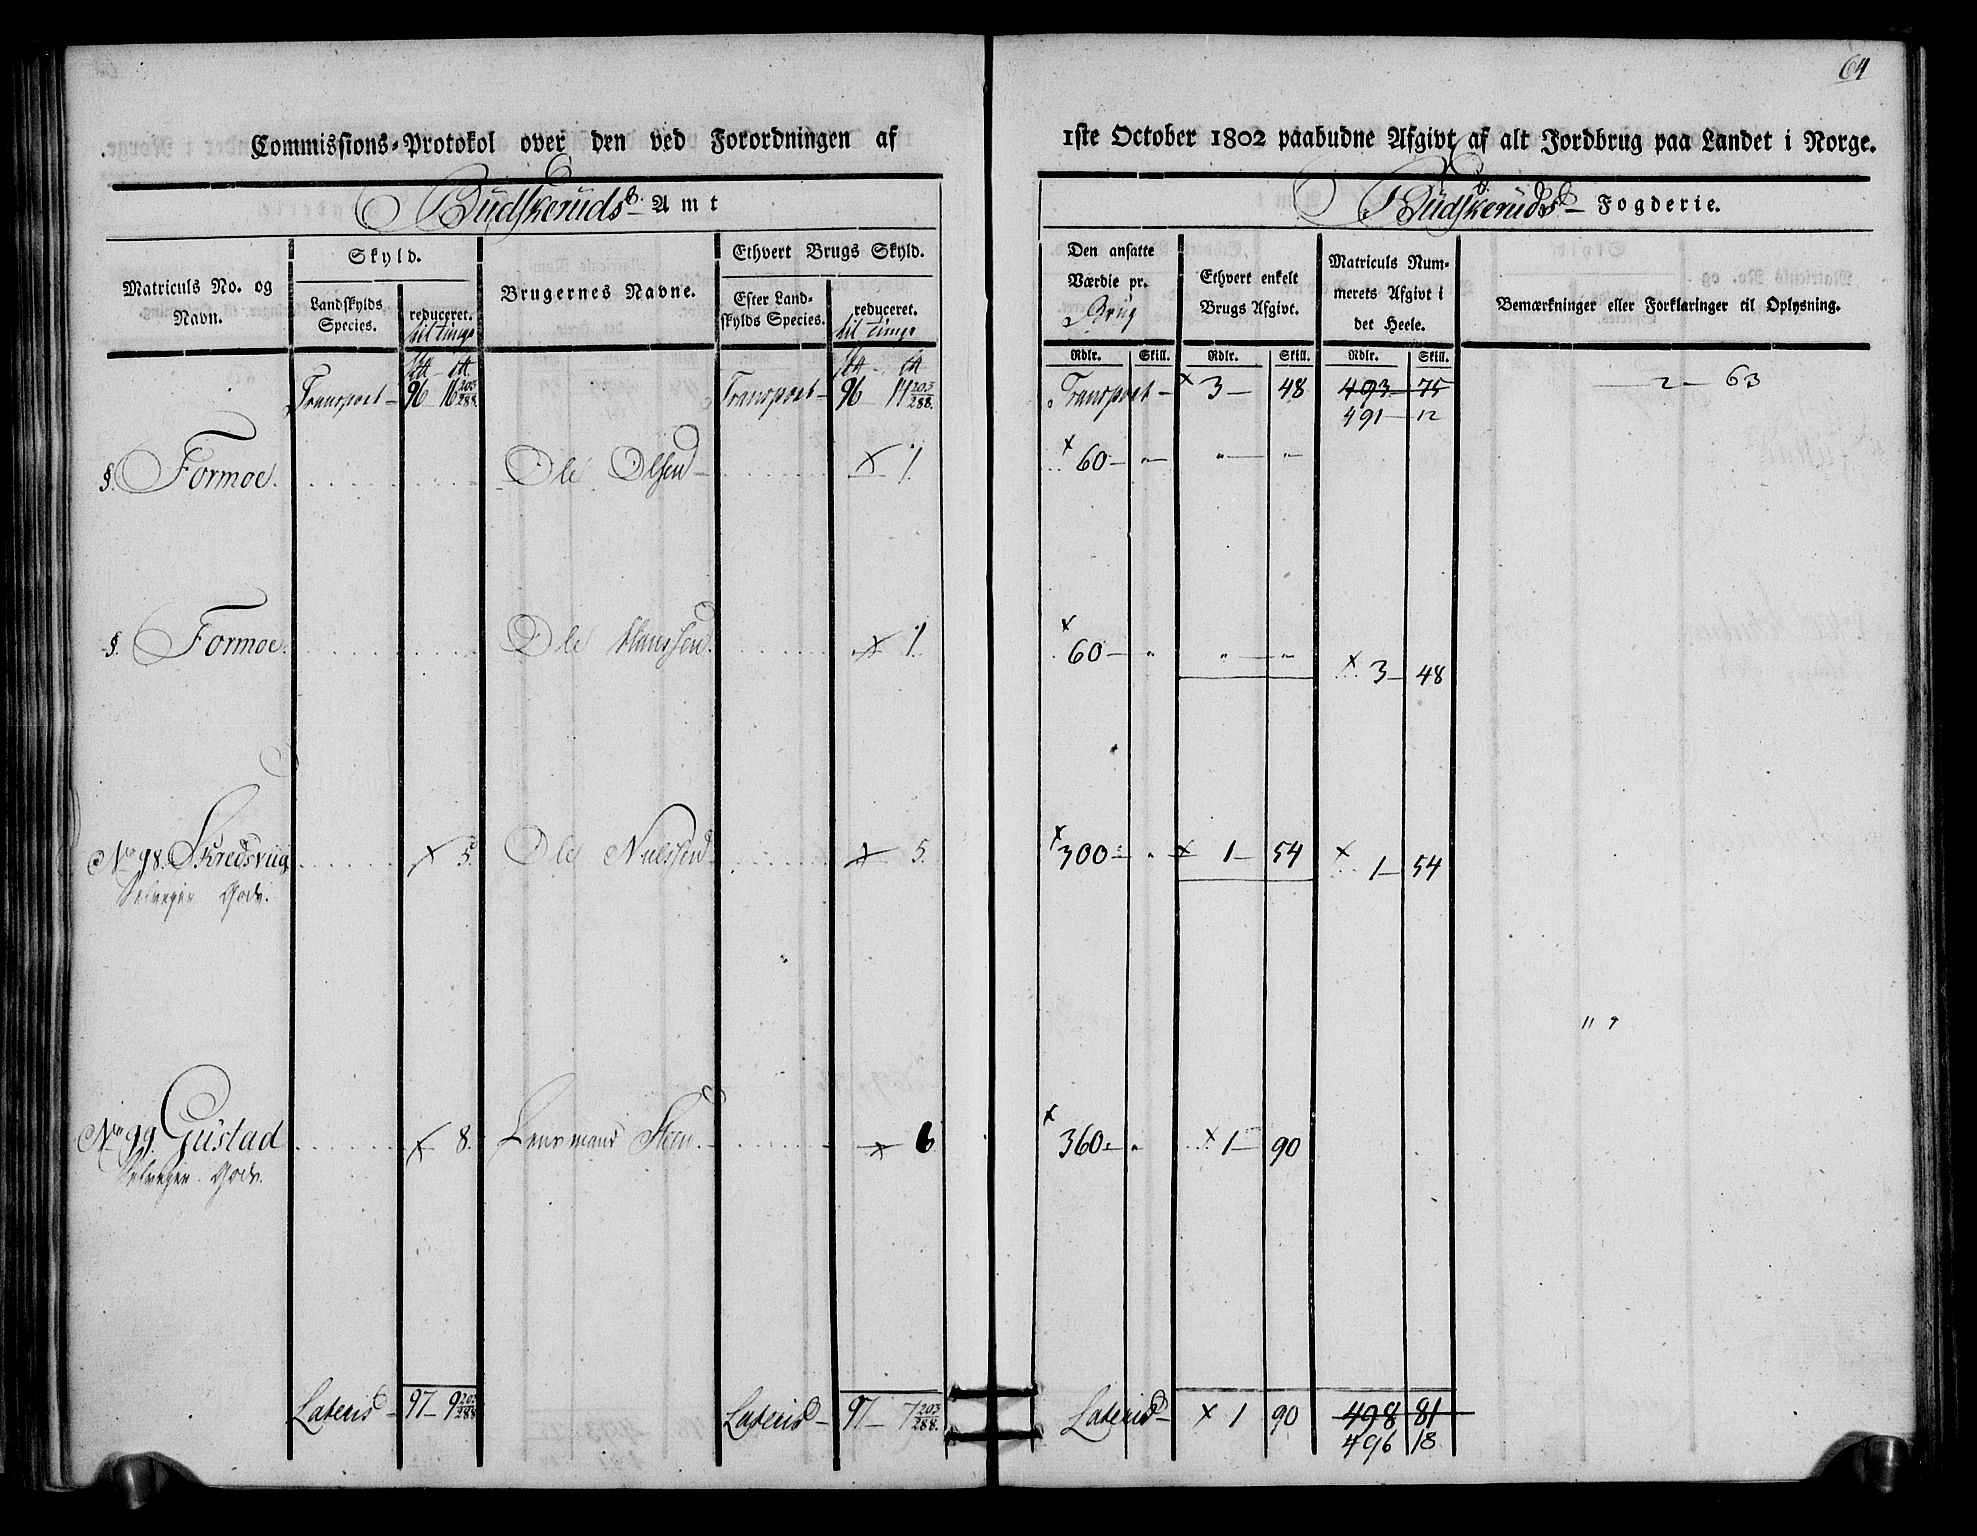 64
Commissions-Protokol over den ved Forordningen af 1ste October 1802 paabudne Afgivt af alt Jordbrug paa Landet i Norge.
Budskeruds Amt
Budskeruds Fogderie.
Matriculs No. og Navn.
Skyld.
Landskylds Species.
reduceret.
til tunge
Brugernes Navne.
Ethvert Brugs Skyld.
Efter Landskylds Species.
reduceret.
til tunge
Den ansatte Værdie pr. Brug
Ethvert enkelt Brugs Afgivt.
Matriculs Nummerets Afgivt i det Heele.
Bemærkninger eller Forklaringer til Oplysning.
Rdlr. Skill. Rdlr. Skill. Rdlr. Skill.
Transport – 96 16 203/288. Transport – 96 14 203/288. Transport – x 3 – 48 493 – 75 – 2 – 63
491 – 12
§. Formoe. Ole Olsen x 1. x 60 – " " – "
§. Formoe. Ole Hanssen x 1. x 60 – " " – " x 3 – 48
No 98. Skredsvüg x 5. Ole Nielssen x 5. x 300 – " x 1 – 54 x 1 – 54
Selveyer Gods.
No 99. Güstad x 8. Lensmand Steen x 6 x 360 – " x 1 – 90
Selveyer Gods.
Lateris – 97 – 9 203/288 Lateris – 97 – 7 203/288. Lateris – x 1 90 498 81
496 18